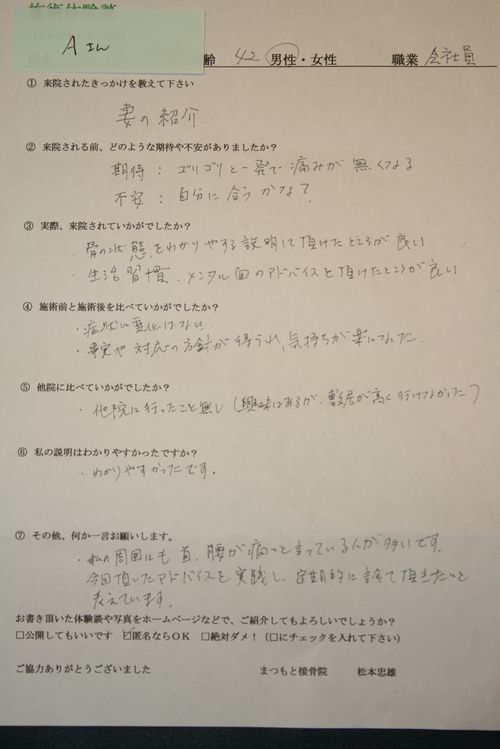 施術体験談
Aさん
齢 42 男性・女性 職業 会社員
① 来院されたきっかけを教えて下さい
妻の紹介
② 来院される前、どのような期待や不安がありましたか？
期待：ゴリゴリと一発で痛みが無くなる
不安：自分に合うかな？
③ 実際、来院されていかがでしたか？
・骨の状態をわかりやすく説明して頂けたところが良い
・生活習慣、メンタル面のアドバイスを頂けたところが良い
④ 施術前と施術後を比べていかがでしたか？
・症状に変化はない
・事実や対応の方針が得られ、気持ちが楽になった。
⑤ 他院に比べていかがでしたか？
・他院に行ったこと無し（興味はあるが、敷居が高く行けなかった）
⑥ 私の説明はわかりやすかったですか？
・わかりやすかったです。
⑦ その他、何か一言お願いします。
・私の周囲にも首、腰が痛いと言っている人が多いです。
今回頂いたアドバイスを実践し、定期的に診て頂きたいと
考えています。
お書き頂いた体験談や写真をホームページなどで、ご紹介してもよろしいでしょうか？
□公開してもいいです ☑匿名ならOK □絶対ダメ！（□にチェックを入れて下さい）
ご協力ありがとうございました まつもと接骨院 松本忠雄